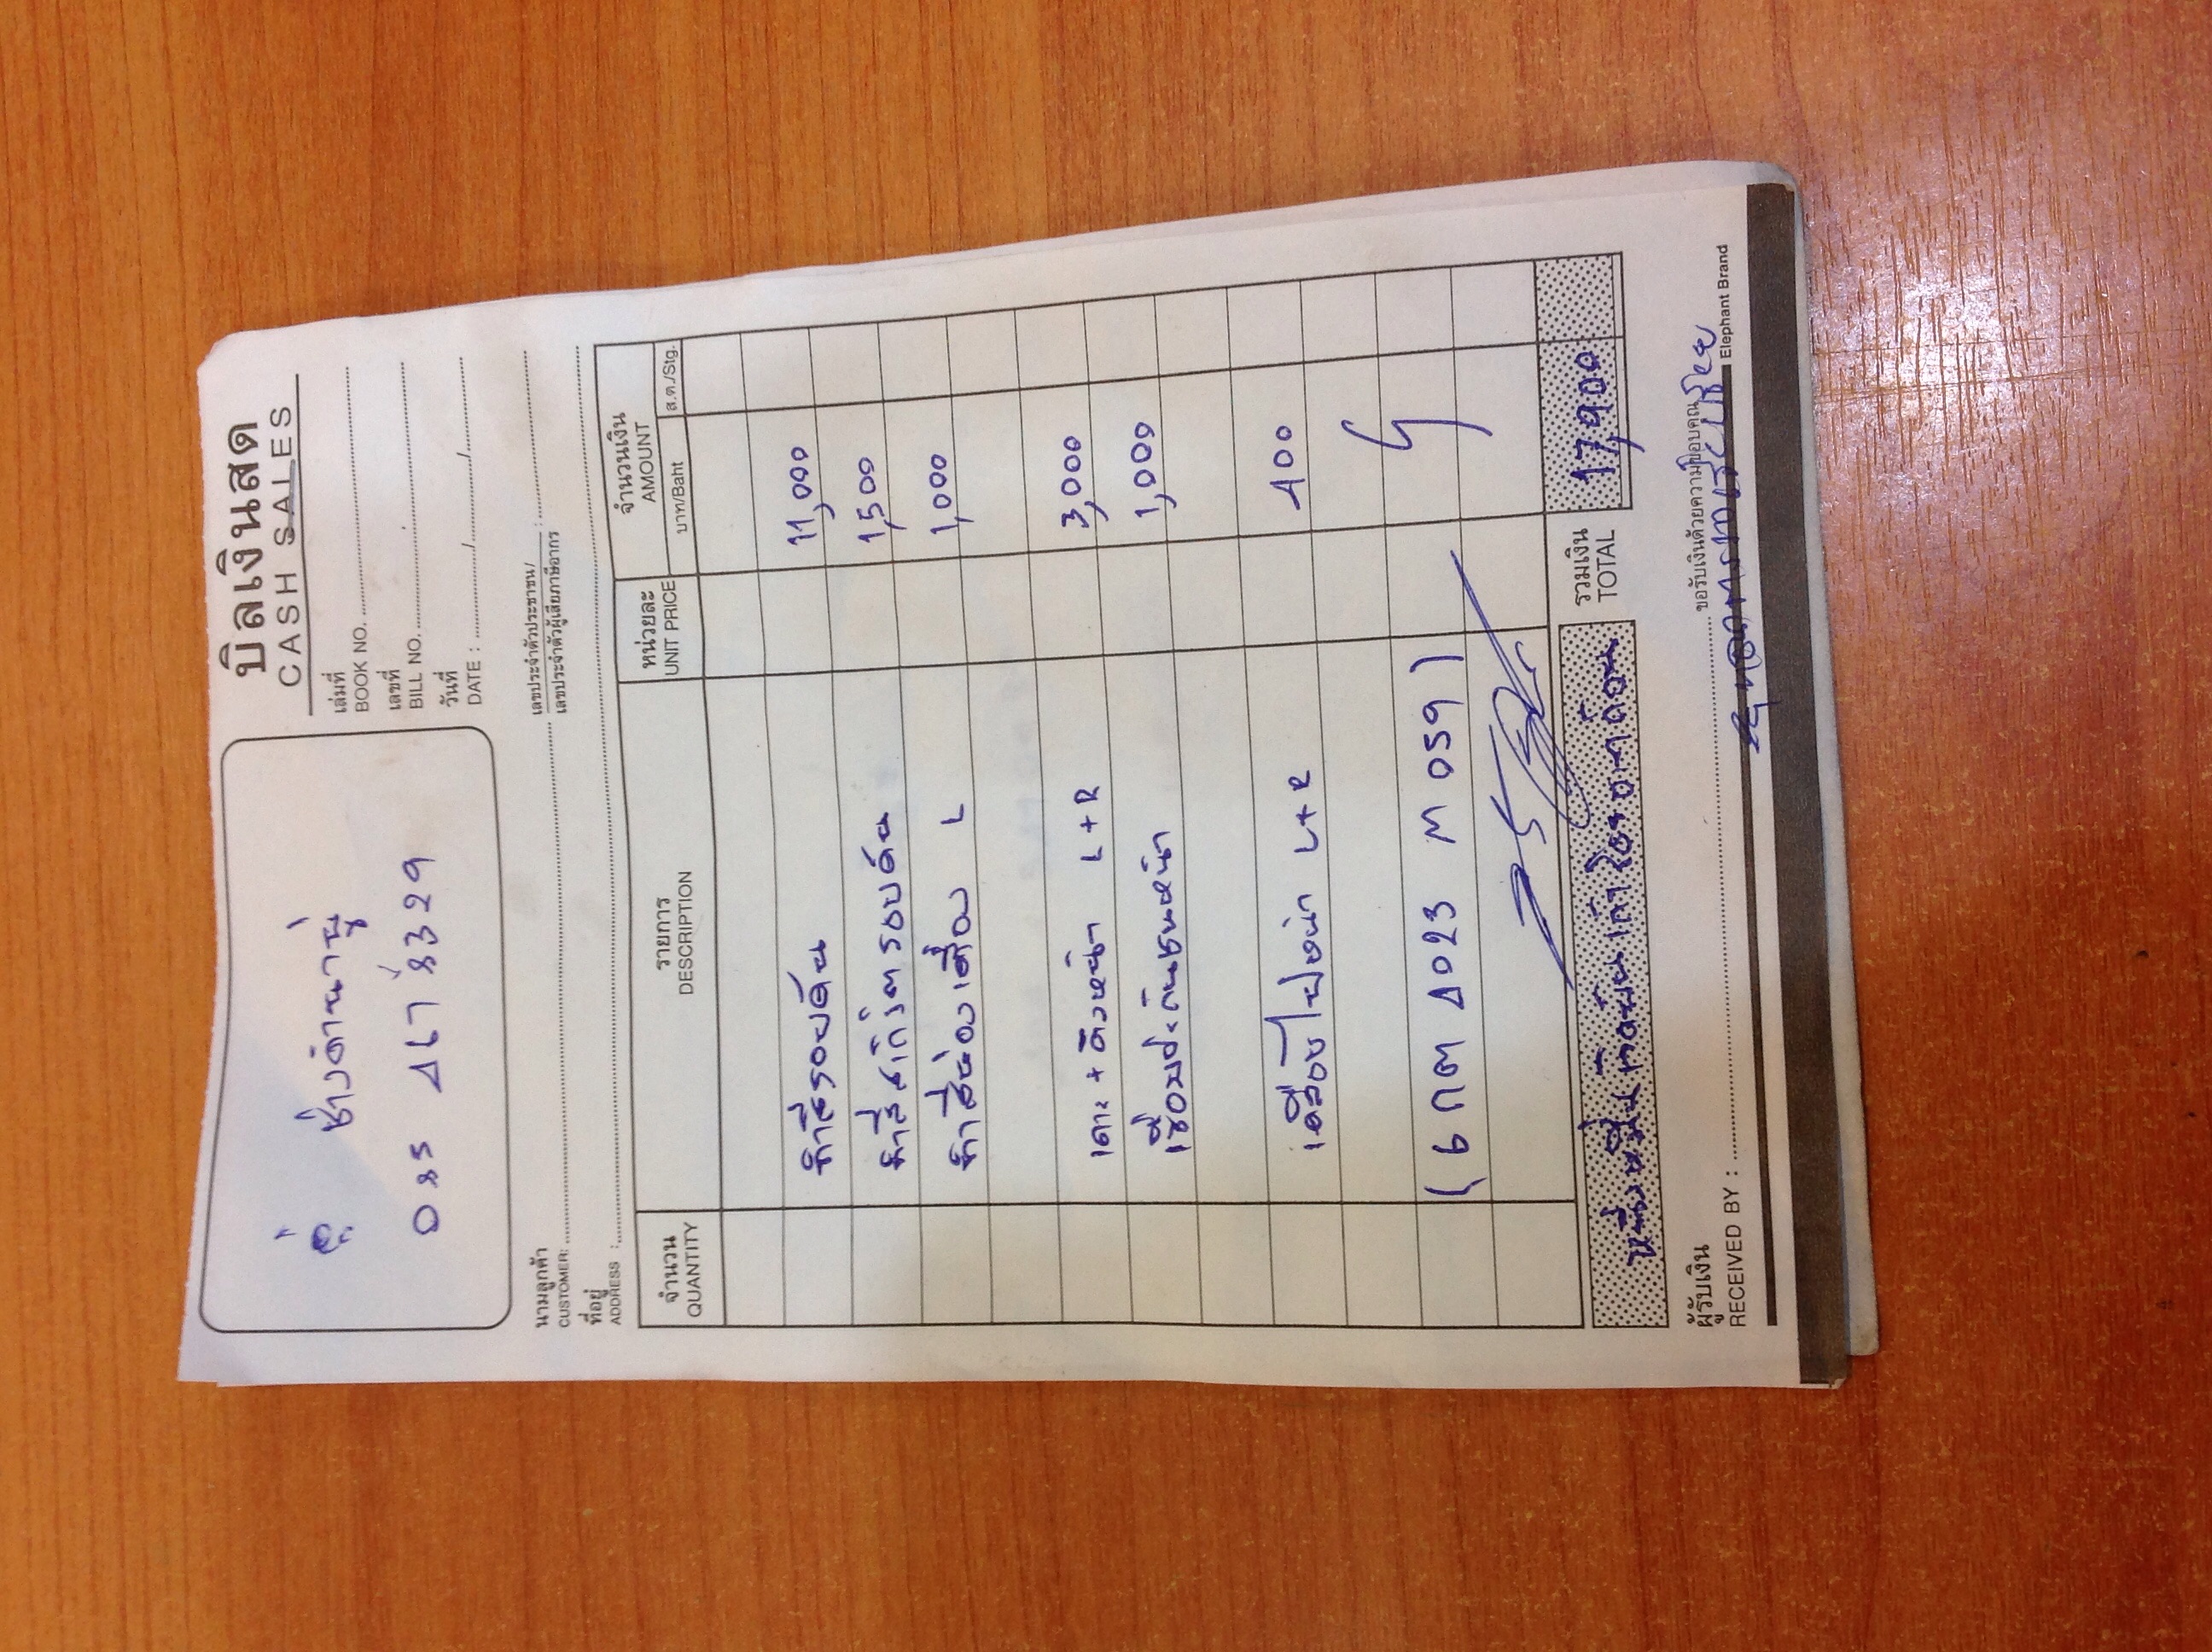 บิลเงินสด
CASH SALES
อู่ ช่างดำนาปู่
เล่มที่
BOOK NO.
เลขที่
BILL NO.
วันที่
DATE : / /
นามลูกค้า
CUSTOMER:
เลขประจำตัวประชาชน/
เลขประจำตัวผู้เสียภาษีอากร :
ที่อยู่
ADDRESS :
จำนวน รายการ หน่วยละ จำนวนเงิน
QUANTITY DESCRIPTION UNIT PRICE AMOUNT
บาท/Baht ส.ต./Stg.
ทำสีรอบคัน 11,000
ทำสีสเกิร์ตรอบคัน 1,500
ทำสีช่องเตือง L 1,000
เคาะ + ดึงหน้า L + R 3,000
เชื่อมประกันชนหน้า 1,000
เคลือบไฟหน้า L + R 400
( 6 กต 4023 M 059 )
หนึ่งหมื่นเจ็ดพันเก้าร้อยบาทถ้วน รวมเงิน 17,900
TOTAL
ผู้รับเงิน
RECEIVED BY :
ขอรับเงินด้วยความขอบคุณ
Elephant Brand